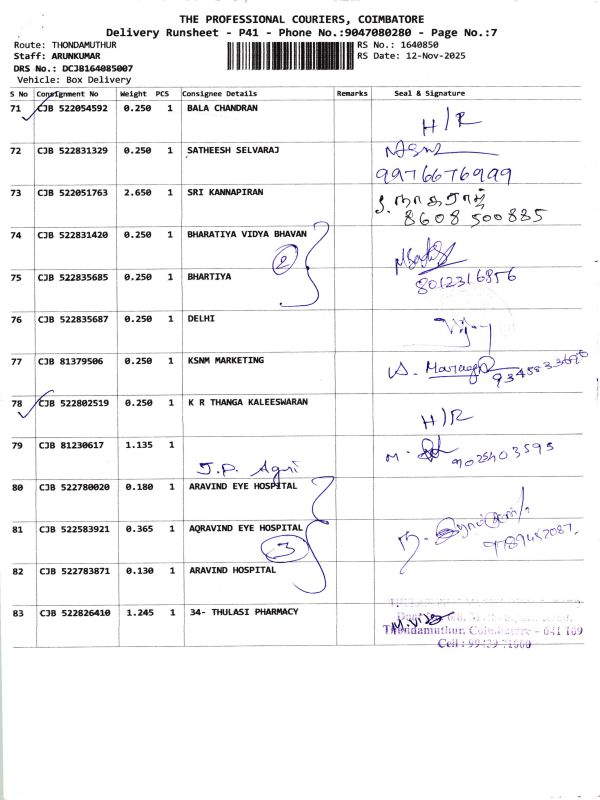 THE PROFESSIONAL COURIERS, COIMBATORE
Delivery Runsheet - P41 - Phone No.:9047080280 - Page No.:7
Route: THONDAMUTHUR RS No.: 1640850
Staff: ARUNKUMAR RS Date: 12-Nov-2025
DRS No.: DCJB164085007
Vehicle: Box Delivery
S No Consignment No Weight PCS Consignee Details Remarks Seal & Signature
71 CJB 522054592 0.250 1 BALA CHANDRAN H/R
72 CJB 522831329 0.250 1 SATHEESH SELVARAJ
9976676999
73 CJB 522051763 2.650 1 SRI KANNAPIRAN
8608 500885
74 CJB 522831420 0.250 1 BHARATIYA VIDYA BHAVAN
2
75 CJB 522835685 0.250 1 BHARTIYA 8012316856
76 CJB 522835687 0.250 1 DELHI
77 CJB 81379506 0.250 1 KSNM MARKETING
78 CJB 522802519 0.250 1 K R THANGA KALEESWARAN H/R
79 CJB 81230617 1.135 1 9025403595
J.P. Agri
80 CJB 522780020 0.180 1 ARAVIND EYE HOSPITAL
81 CJB 522583921 0.365 1 AQRAVIND EYE HOSPITAL
3 9789452087
82 CJB 522783871 0.130 1 ARAVIND HOSPITAL
83 CJB 522826410 1.245 1 34- THULASI PHARMACY
Thondamuthur, Coimbatore - 641 109
Cell :